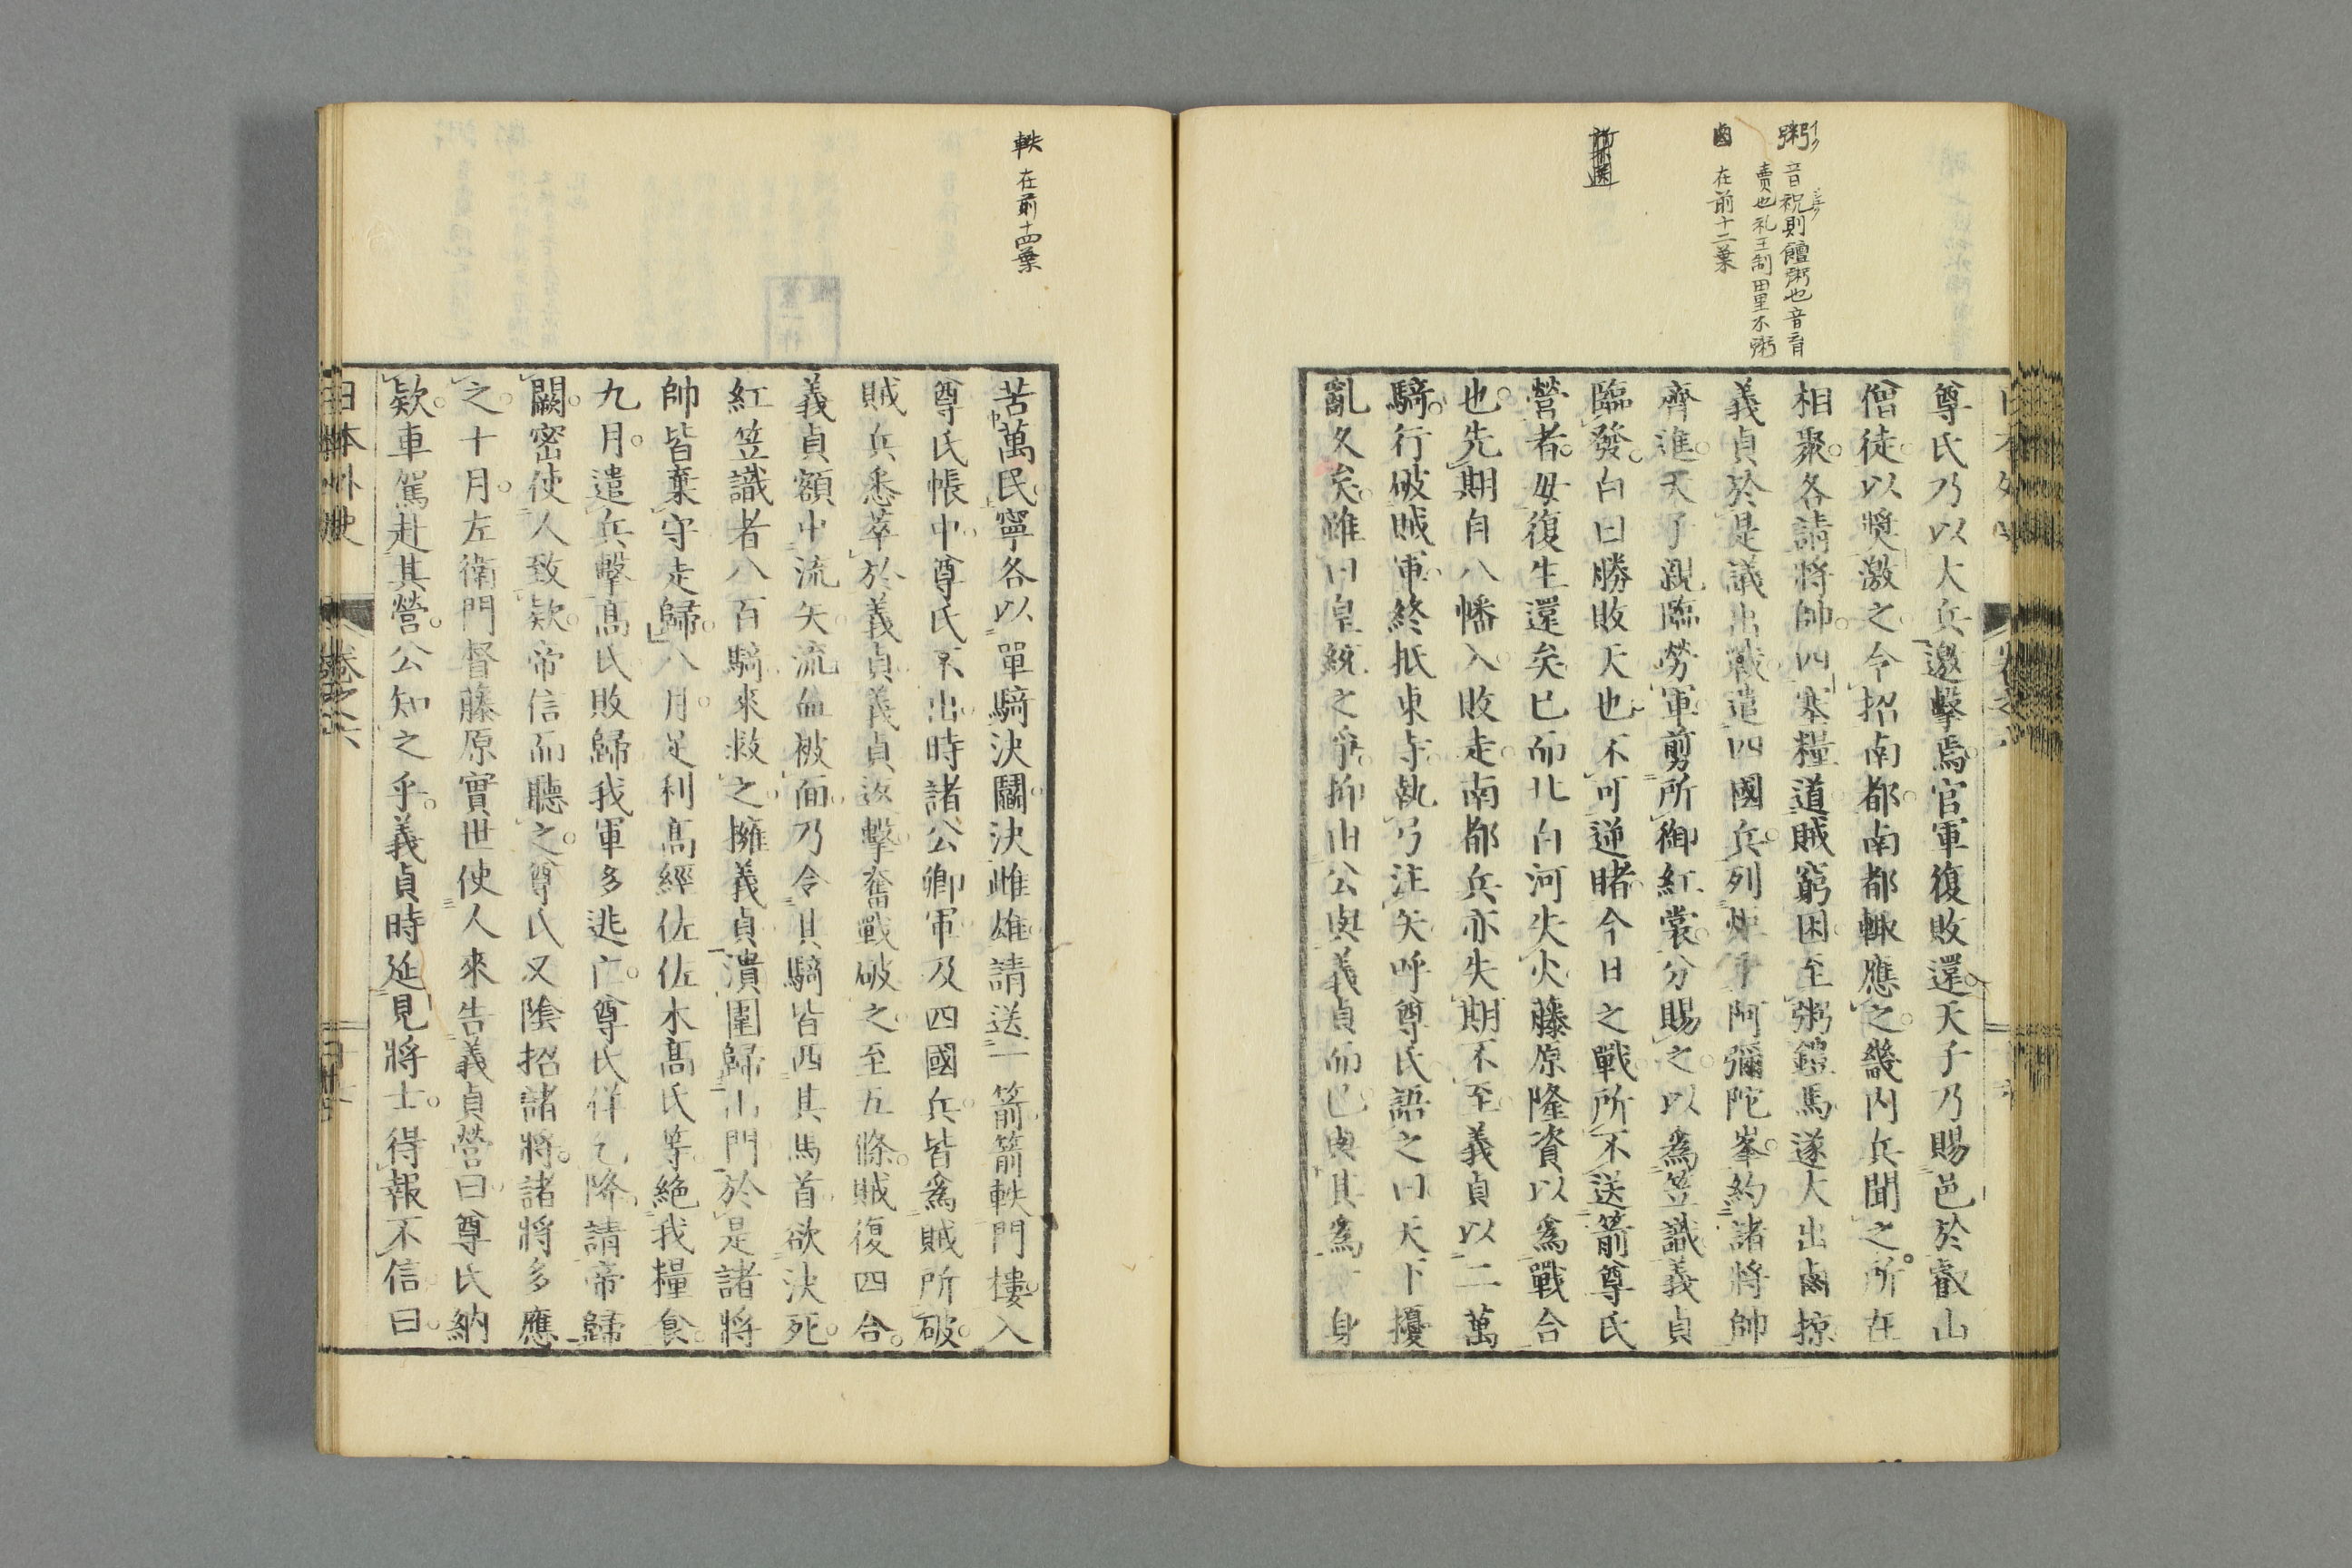 粥 音祝則饘粥也音育
賣也礼王制田里不粥
鹵 在前十二葉
尊氏乃以大兵邀擊焉官軍復敗還天子乃賜邑於叡山
僧徒以奬激之令招南都南都輙應之畿内兵聞之所在
相聚各請將帥四塞糧道賊窮困至粥鎧馬遂大出鹵掠
義貞於是議出戰遣四國兵列炬于阿彌陀峯約諸將帥
齊進天子親臨勞軍剪所御紅裳分賜之以爲笠識義貞
臨發白曰勝敗天也不可逆睹今日之戰所不送箭尊氏
營者毋復生還矣已而北白河失火藤原隆資以爲戰合
也先期自八幡入敗走南都兵亦失期不至義貞以二萬
騎行破賊軍終抵東寺執弓注矢呼尊氏語之曰天下擾
亂久矣雖曰皇統之爭抑由公與義貞而已與其爲身
軼 在前十四葉
苦萬民寧各以單騎決鬭決雌雄請送一箭箭軼門樓入
尊氏帳中尊氏不出時諸公卿軍及四國兵皆爲賊所破
賊兵悉萃於義貞義貞返擊奮戰破之至五條賊復四合
義貞額中流矢流血被面乃令其騎皆西其馬首欲決死
紅笠識者八百騎來救之擁義貞潰圍歸山門於是諸將
帥皆棄守走歸八月足利高經佐佐木高氏等絶我糧食
九月遣兵擊高氏敗歸我軍多逃亡尊氏佯乞降請帝歸
闕密使人致欵帝信而聽之尊氏又陰招諸將諸將多應
之十月左衛門督藤原實世使人來告義貞營曰尊氏納
欵車駕赴其營公知之乎義貞時延見將士得報不信曰
日本外史 卷之六